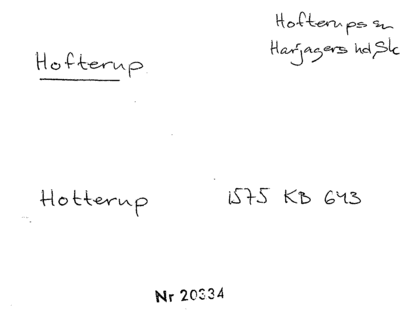 Hofterup
Hofterups sn
Harjagers hd Sk
Hotterup 1575 KB 643
Nr 20334